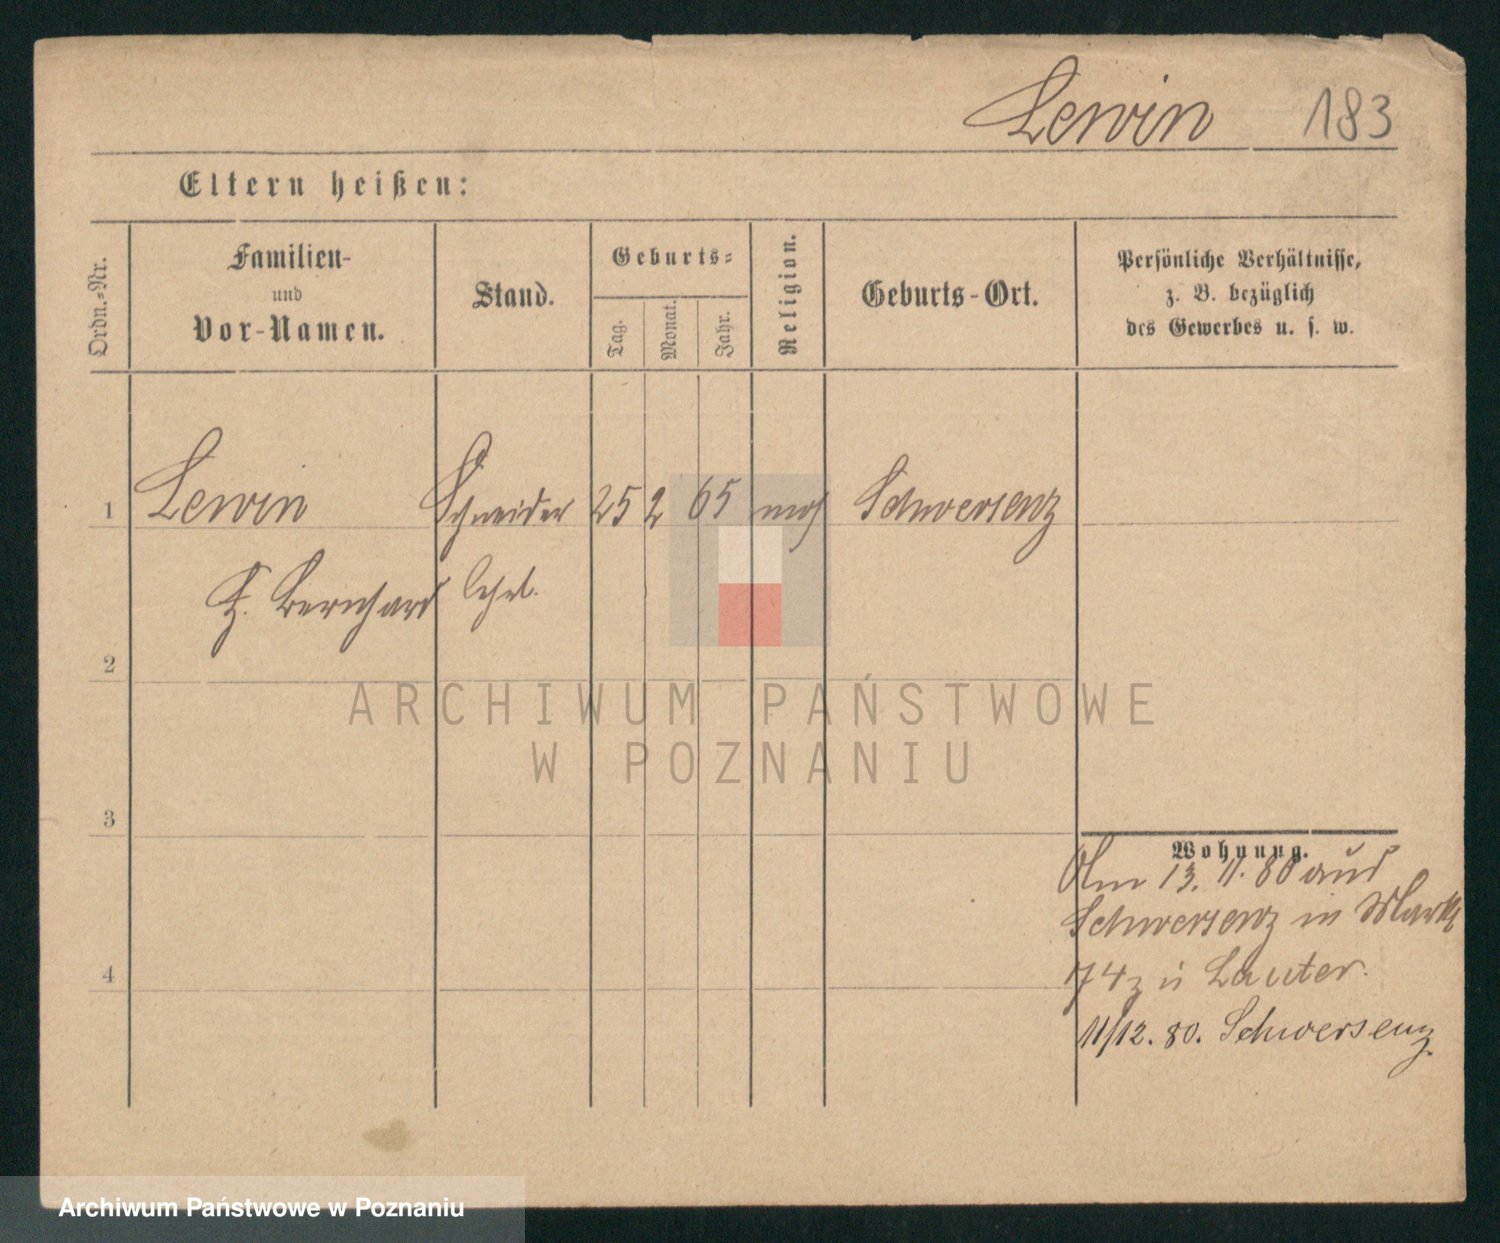 Lewin 183
Eltern heißen:
Ordn.-Nr.
Familien-
und
Vor-Namen.
Stand.
Geburts-
Tag.
Monat.
Jahr.
Religion.
Geburts-Ort.
Persönliche Verhältnisse,
z. B. bezüglich
des Gewerbes u. s. w.
1 Lewin Schneider 25 2 65 mos Schwersenz
Bernhard
2
3
4
Wohnung.
Am 13. 11. 80 aus
Schwersenz in Markt
74 Lauter.
11/12. 80. Schwersenz
ARCHIWUM PAŃSTWOWE
W POZNANIU
Archiwum Państwowe w Poznaniu